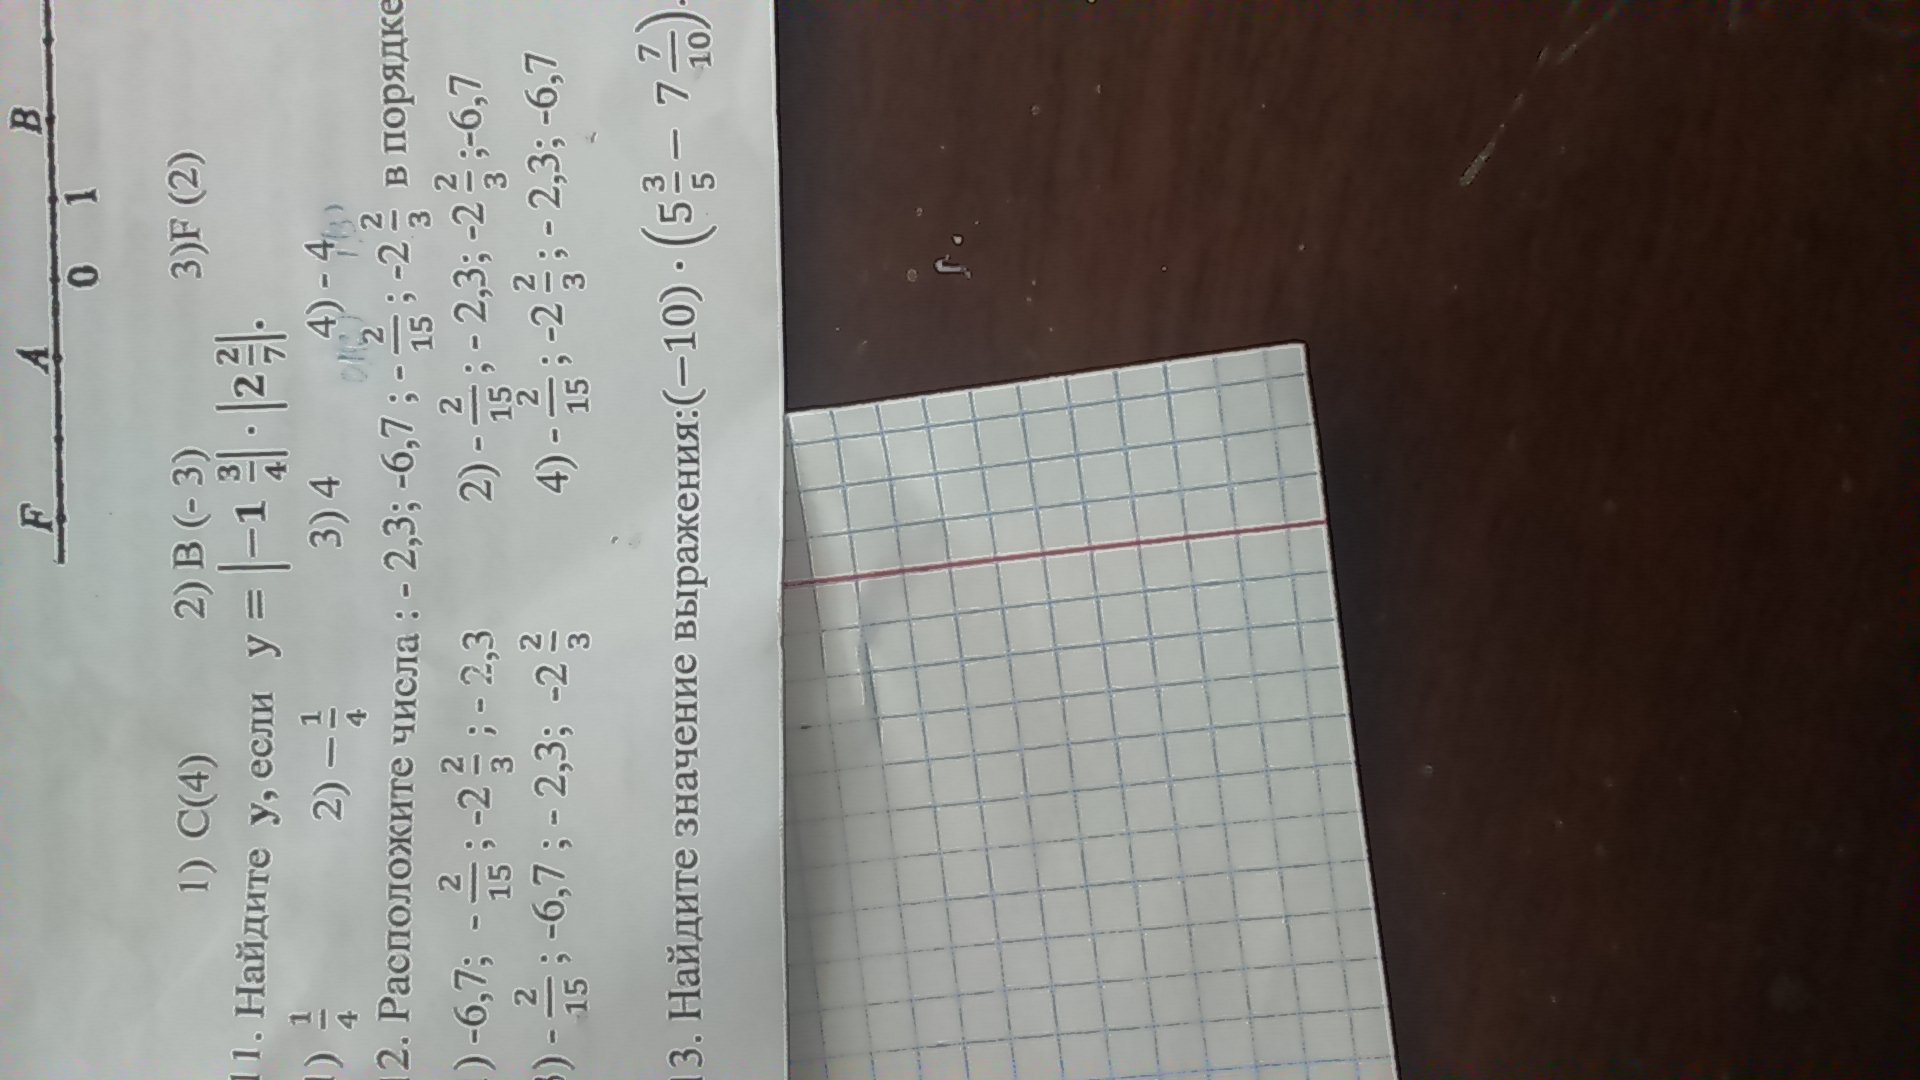 F A B
0 1
1) C(4) 2) B (- 3) 3)F (2)
11. Найдите y, если y = |−1 3/4| · |2 2/7|.
1) 1/4 2) −1/4 3) 4 4) - 4
12. Расположите числа : - 2,3; -6,7 ; - 2/15 ; -2 2/3 в порядке
) -6,7; - 2/15 ; -2 2/3 ; - 2,3 2) - 2/15 ; - 2,3; -2 2/3 ;-6,7
3) - 2/15 ; -6,7 ; - 2,3; -2 2/3 4) - 2/15 ; -2 2/3 ; - 2,3; -6,7
13. Найдите значение выражения:(−10) · (5 3/5 − 7 7/10).